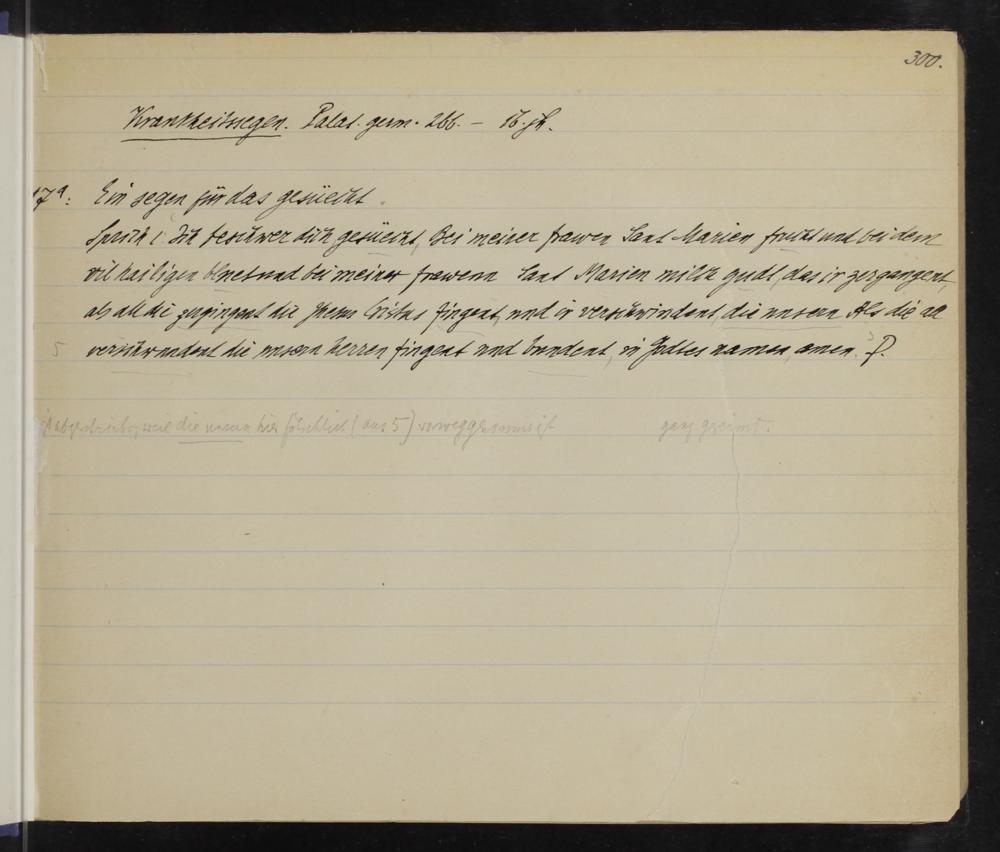 300.
Krankheitssegen. Palat. germ. 266. – 16. Jh.
17a: Ein segen für das gesücht.
Sprich: Ich beschwer dich gesücht, bei meiner frawen Sant Marien frucht und bei dem
vil hailigen bluet und bei meiner frawenn Sant Marien milch guet, das ir zergangent,
als all die zergingent die Jhesu Cristus fingent, und ir verschwindent, die unsern Als die all
5 verschwindent die unsern herren fingent und bundent, in Gottes namen, amen.
abgeschrieben, weil die unsern hier fälschlich (aus 5) vorweggenommen ist ganz gereimt.